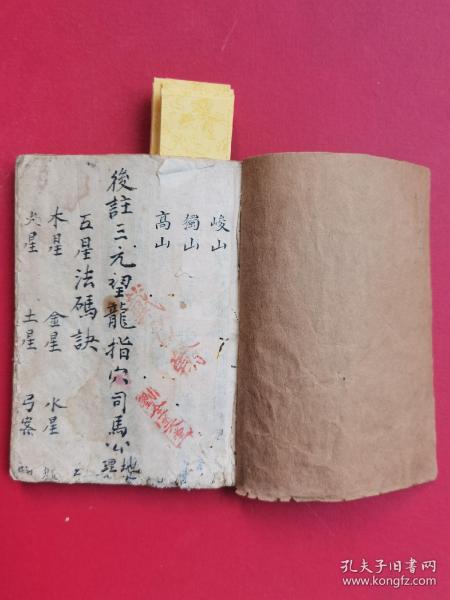 峻山
獨山
高山
後註三元望龍指穴司馬山地理
五星法碼訣
木星 金星 水星
火星 土星 弓案
孔夫子旧书网
www.kongfz.com